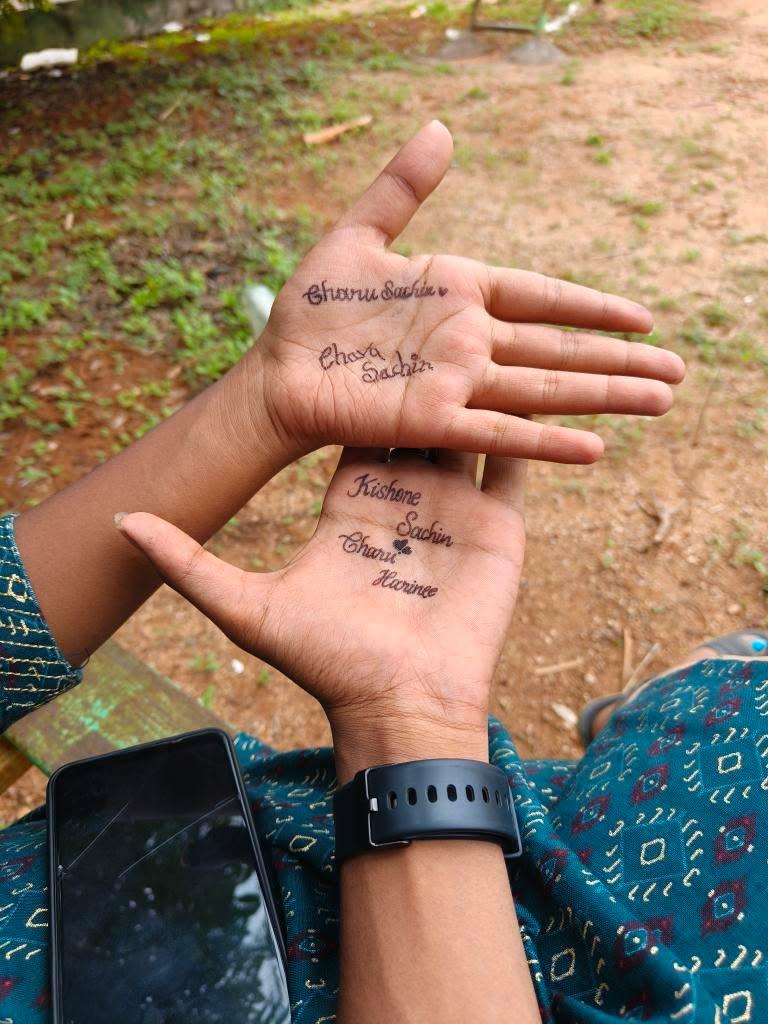 Charu Sachin
Chava
Sachin
Kishone
Sachin
Charu
Harinee